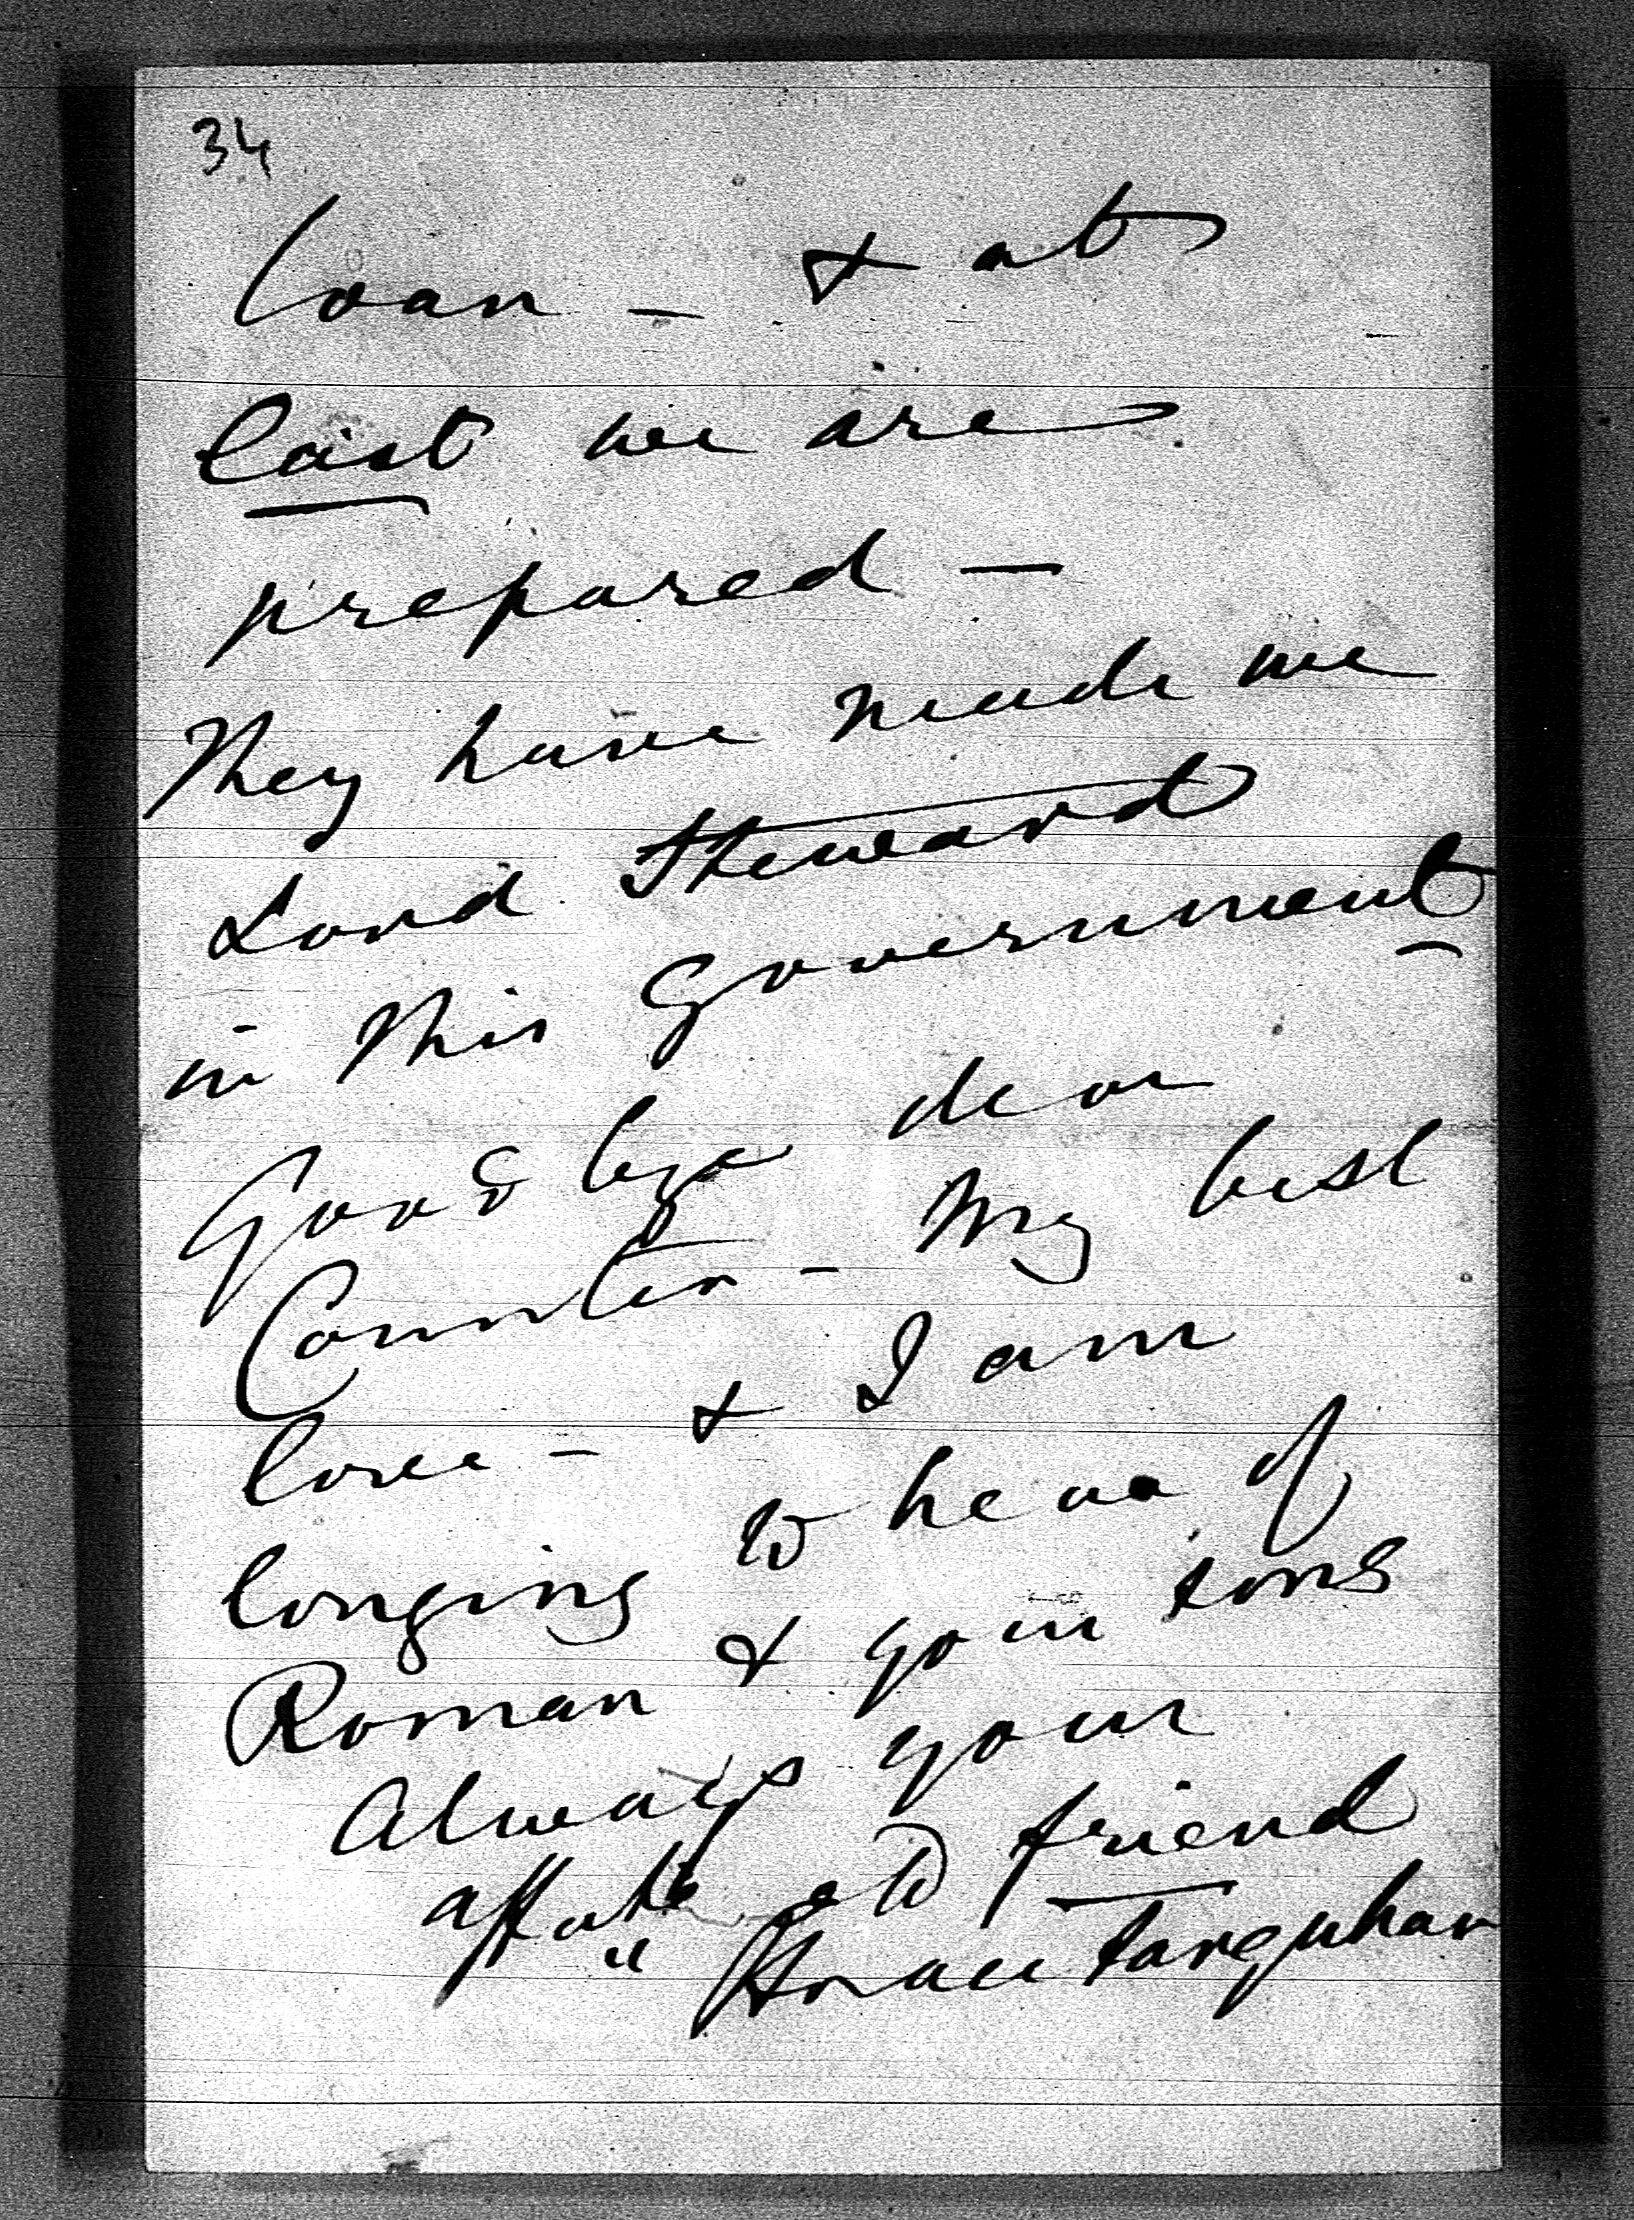 34
loan - & at
last we are
prepared -
They have made me
Lord Steward
in this Government
Good bye dear
Countess - My best
love - & I am
longing to hear of
Roman & your sons
Always your
affate old friend
Horace Farquhar